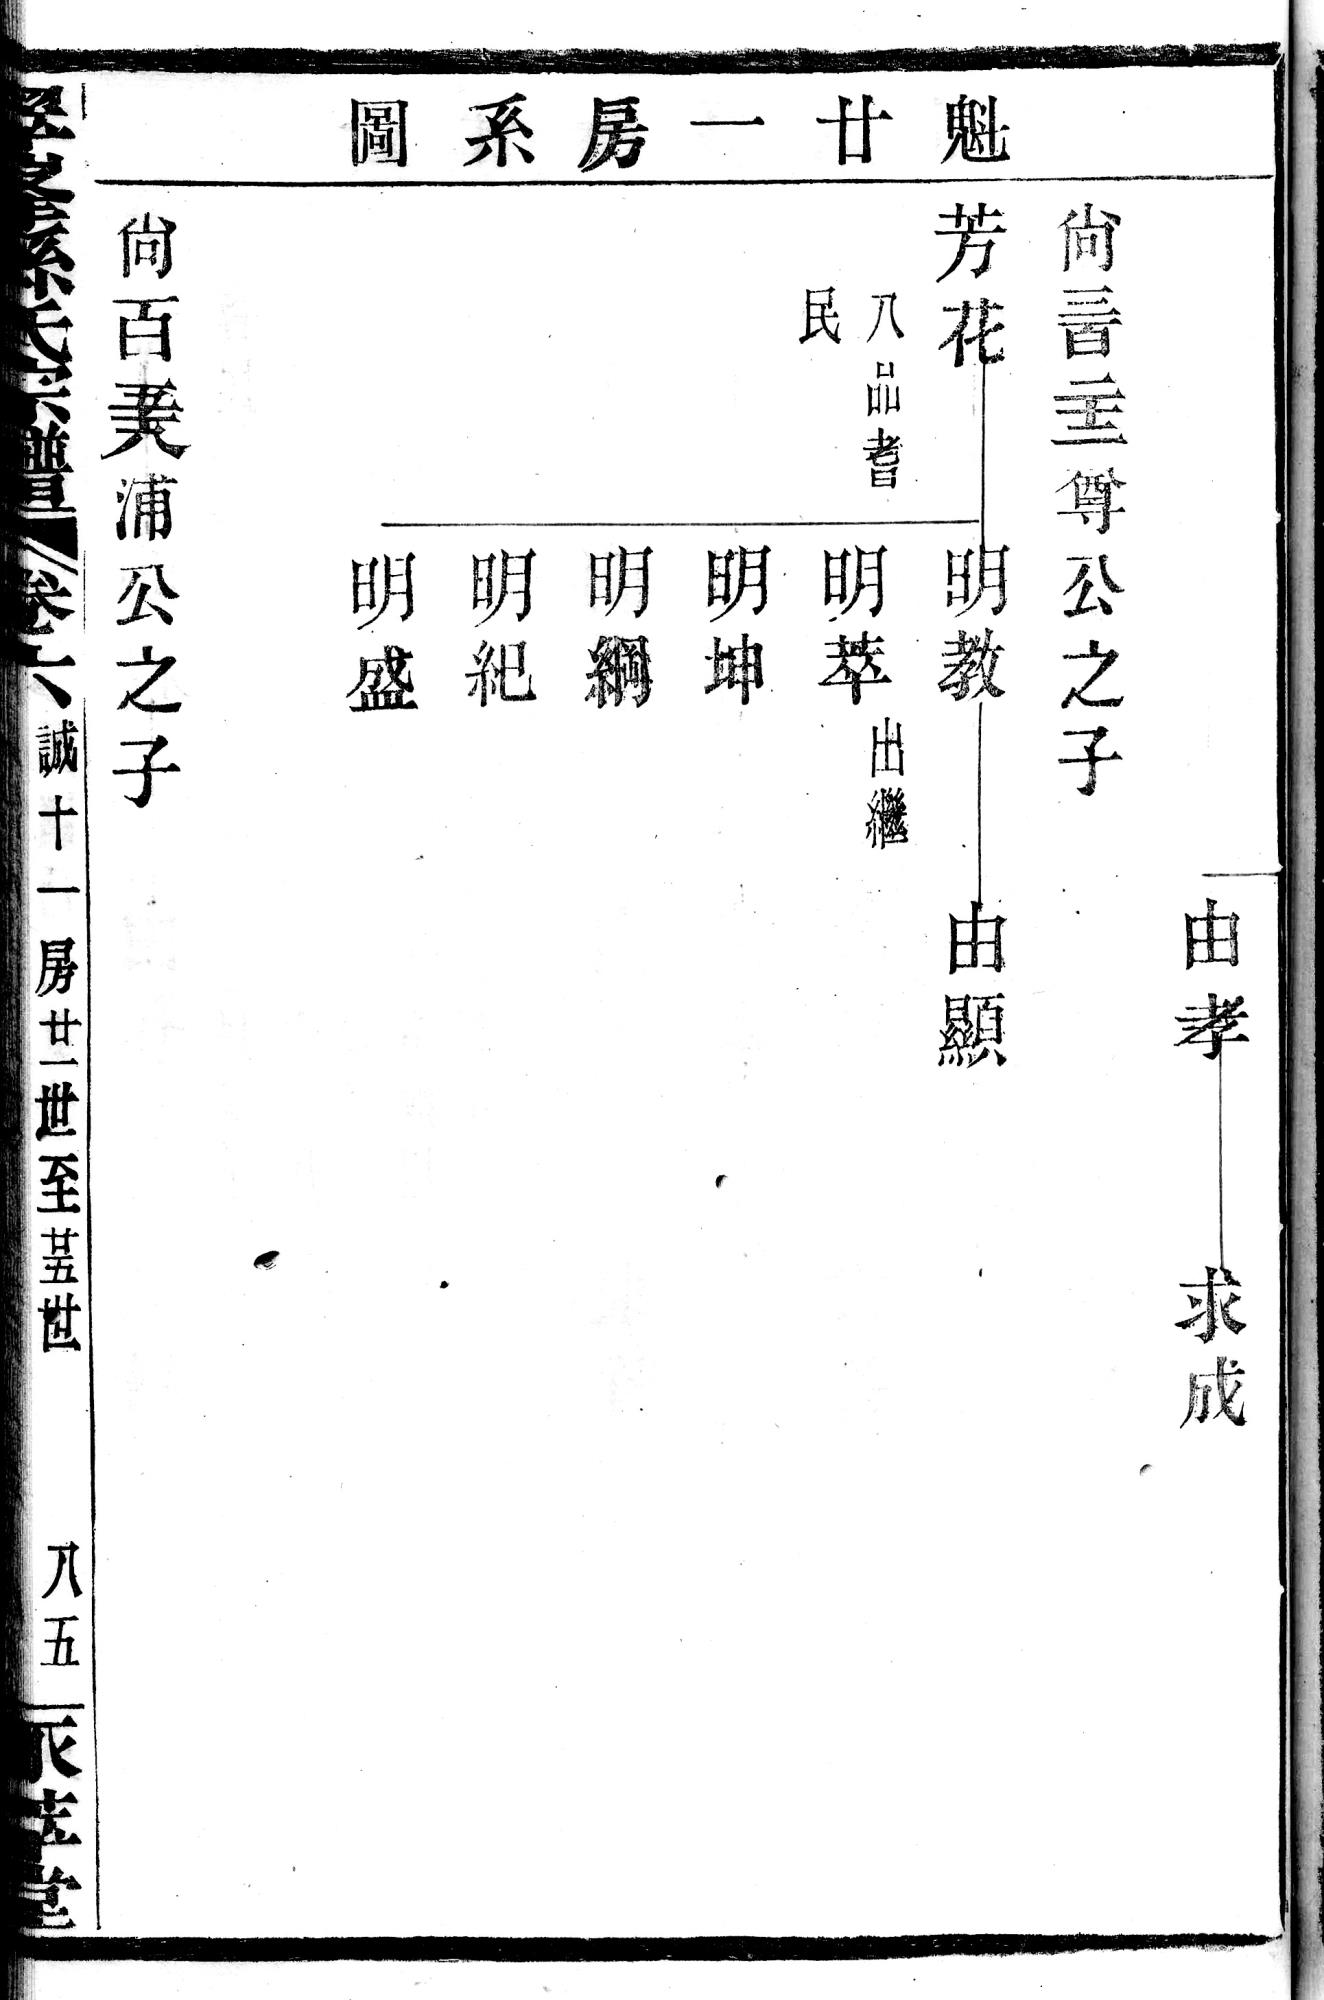 魁廿一房系圖
由孝
求成
尙三百二十三尊公之子
芳花
八品耆
民
明教
由顯
明萃
出繼
明坤
明綱
明紀
明盛
尙百美浦公之子
孫氏宗譜
卷六
誠十一房廿一世至廿五世
八五
堂